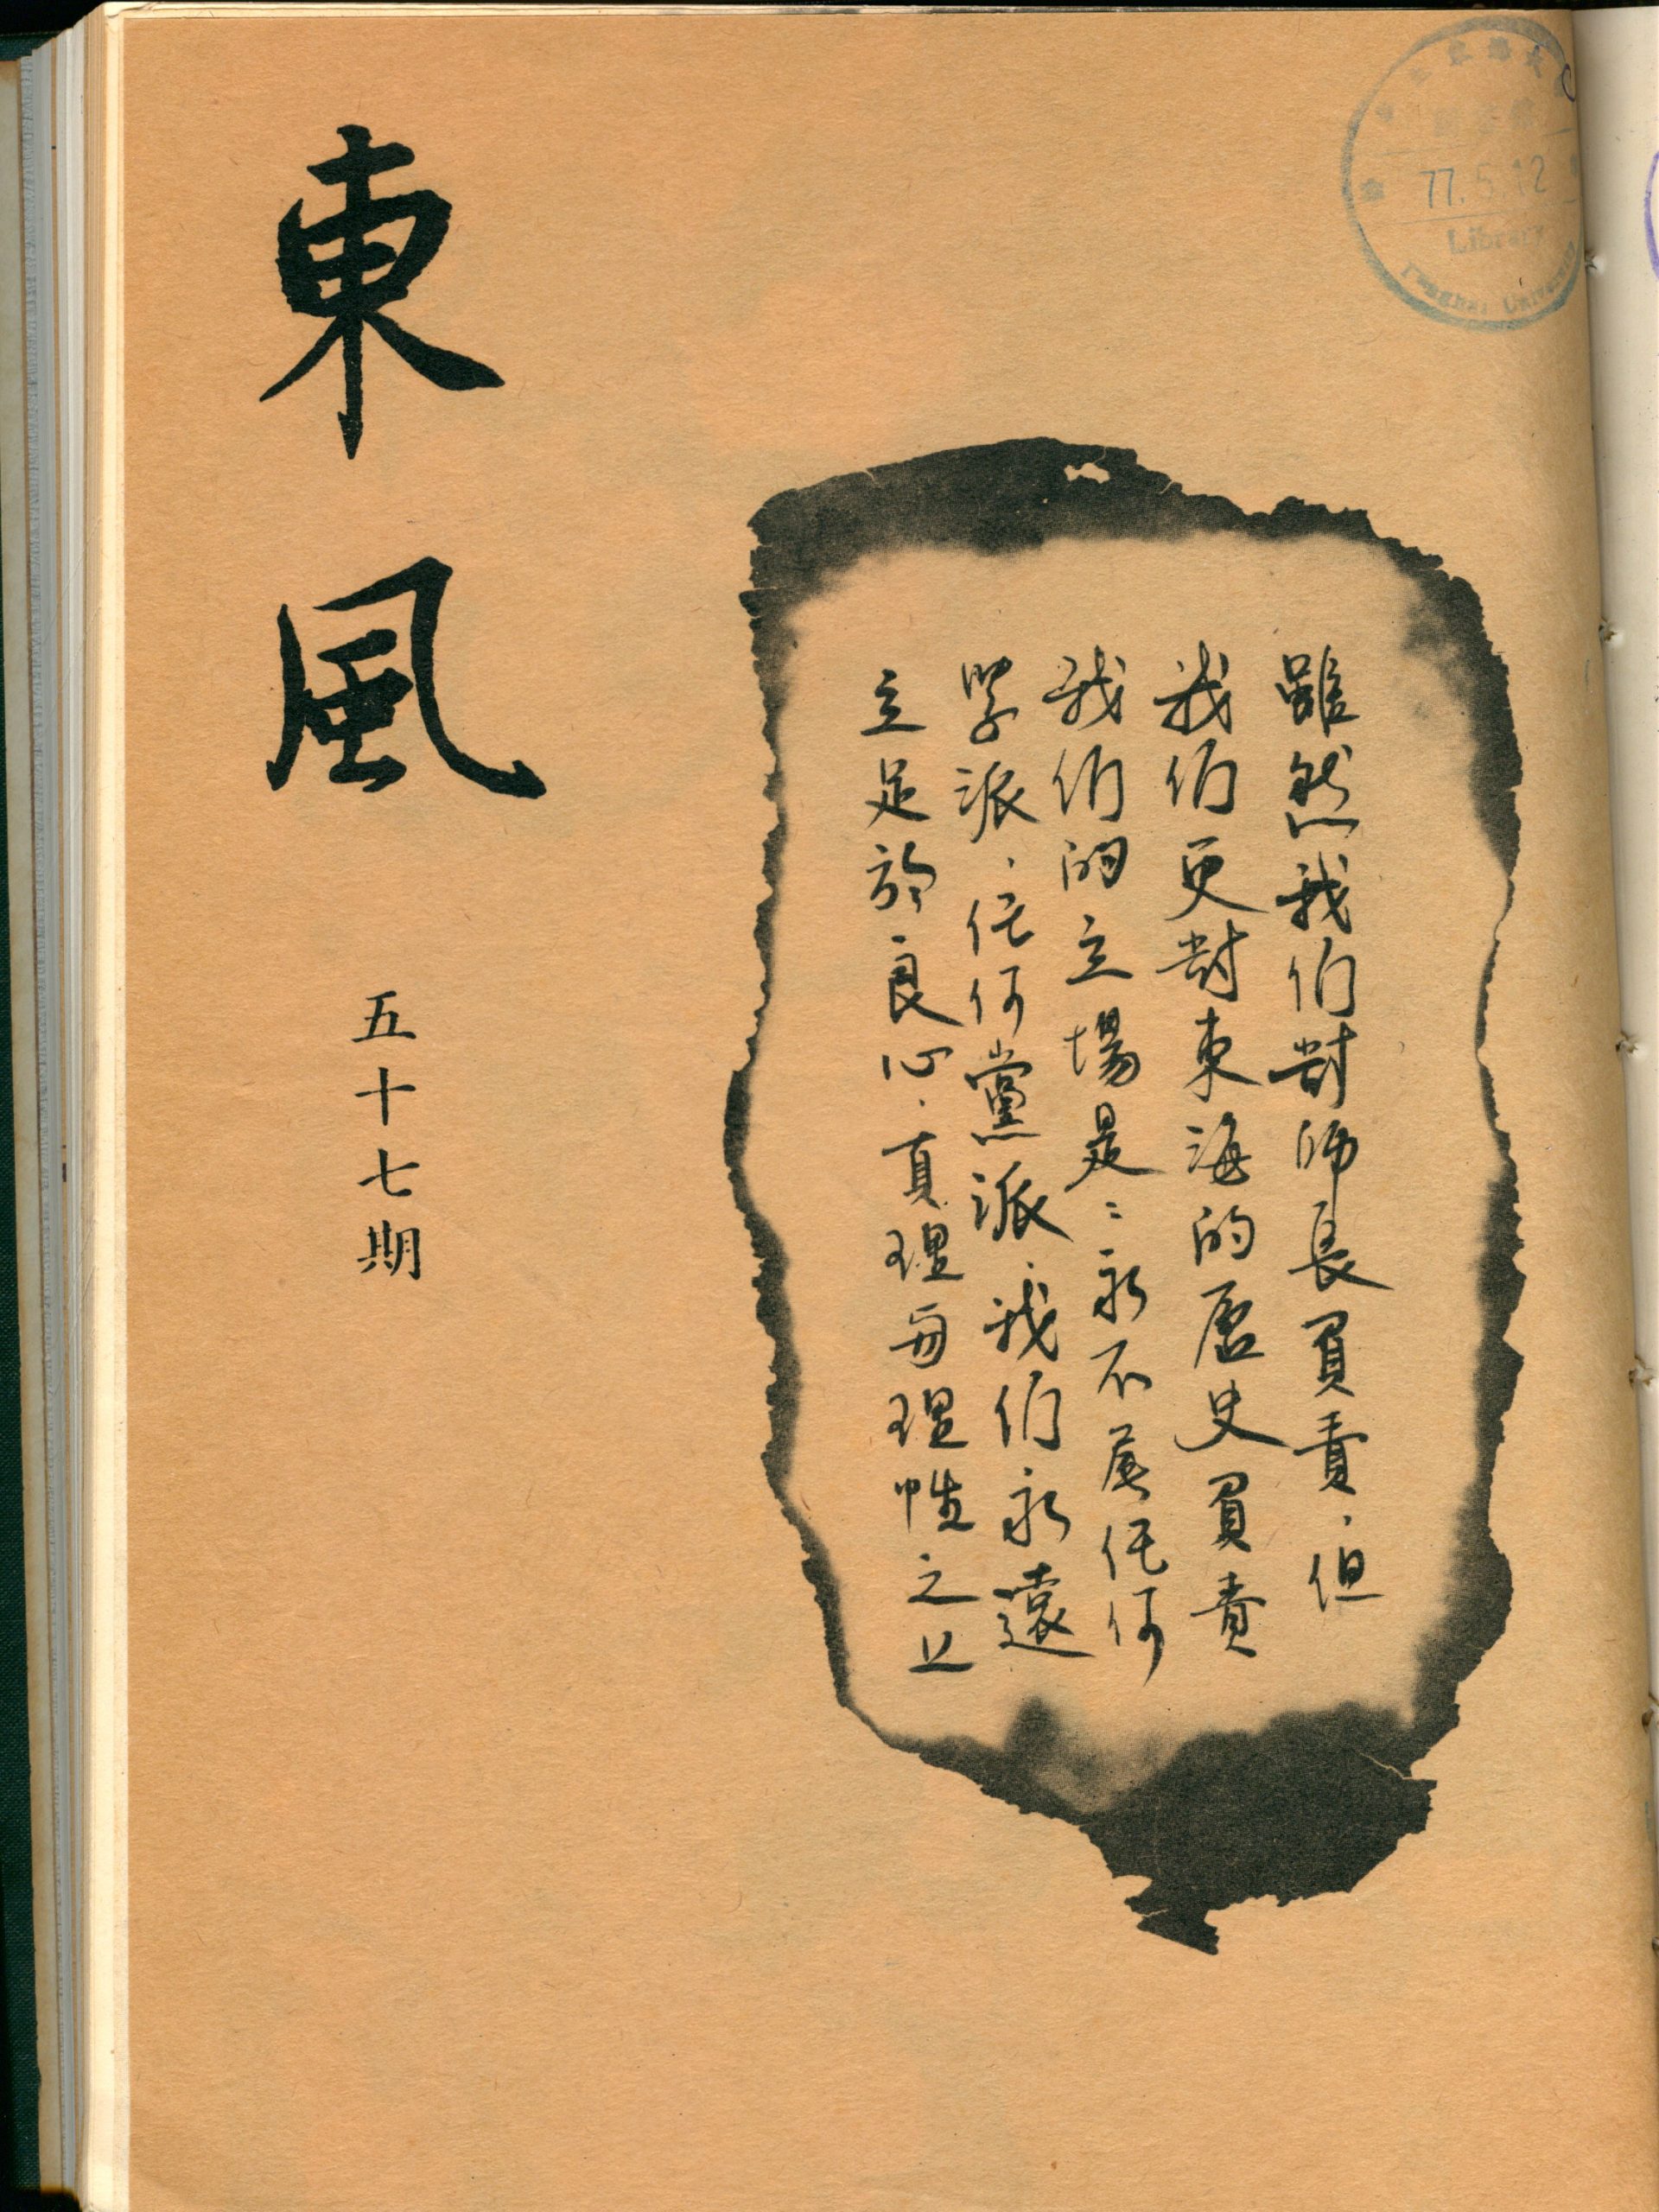 雖然我們對師長負責，但
我們更對東海的歷史負責
我們的立場是：永不屬任何
學派，任何黨派，我們永遠
立足於良心，真理與理性之上
東風
五十七期
77.5.12
Library
Tunghai University